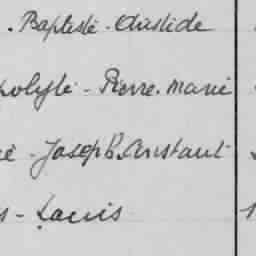 . Baptiste - Aristide
polyte - Pierre. Marie
é - Joseph. Constant
s - Louis